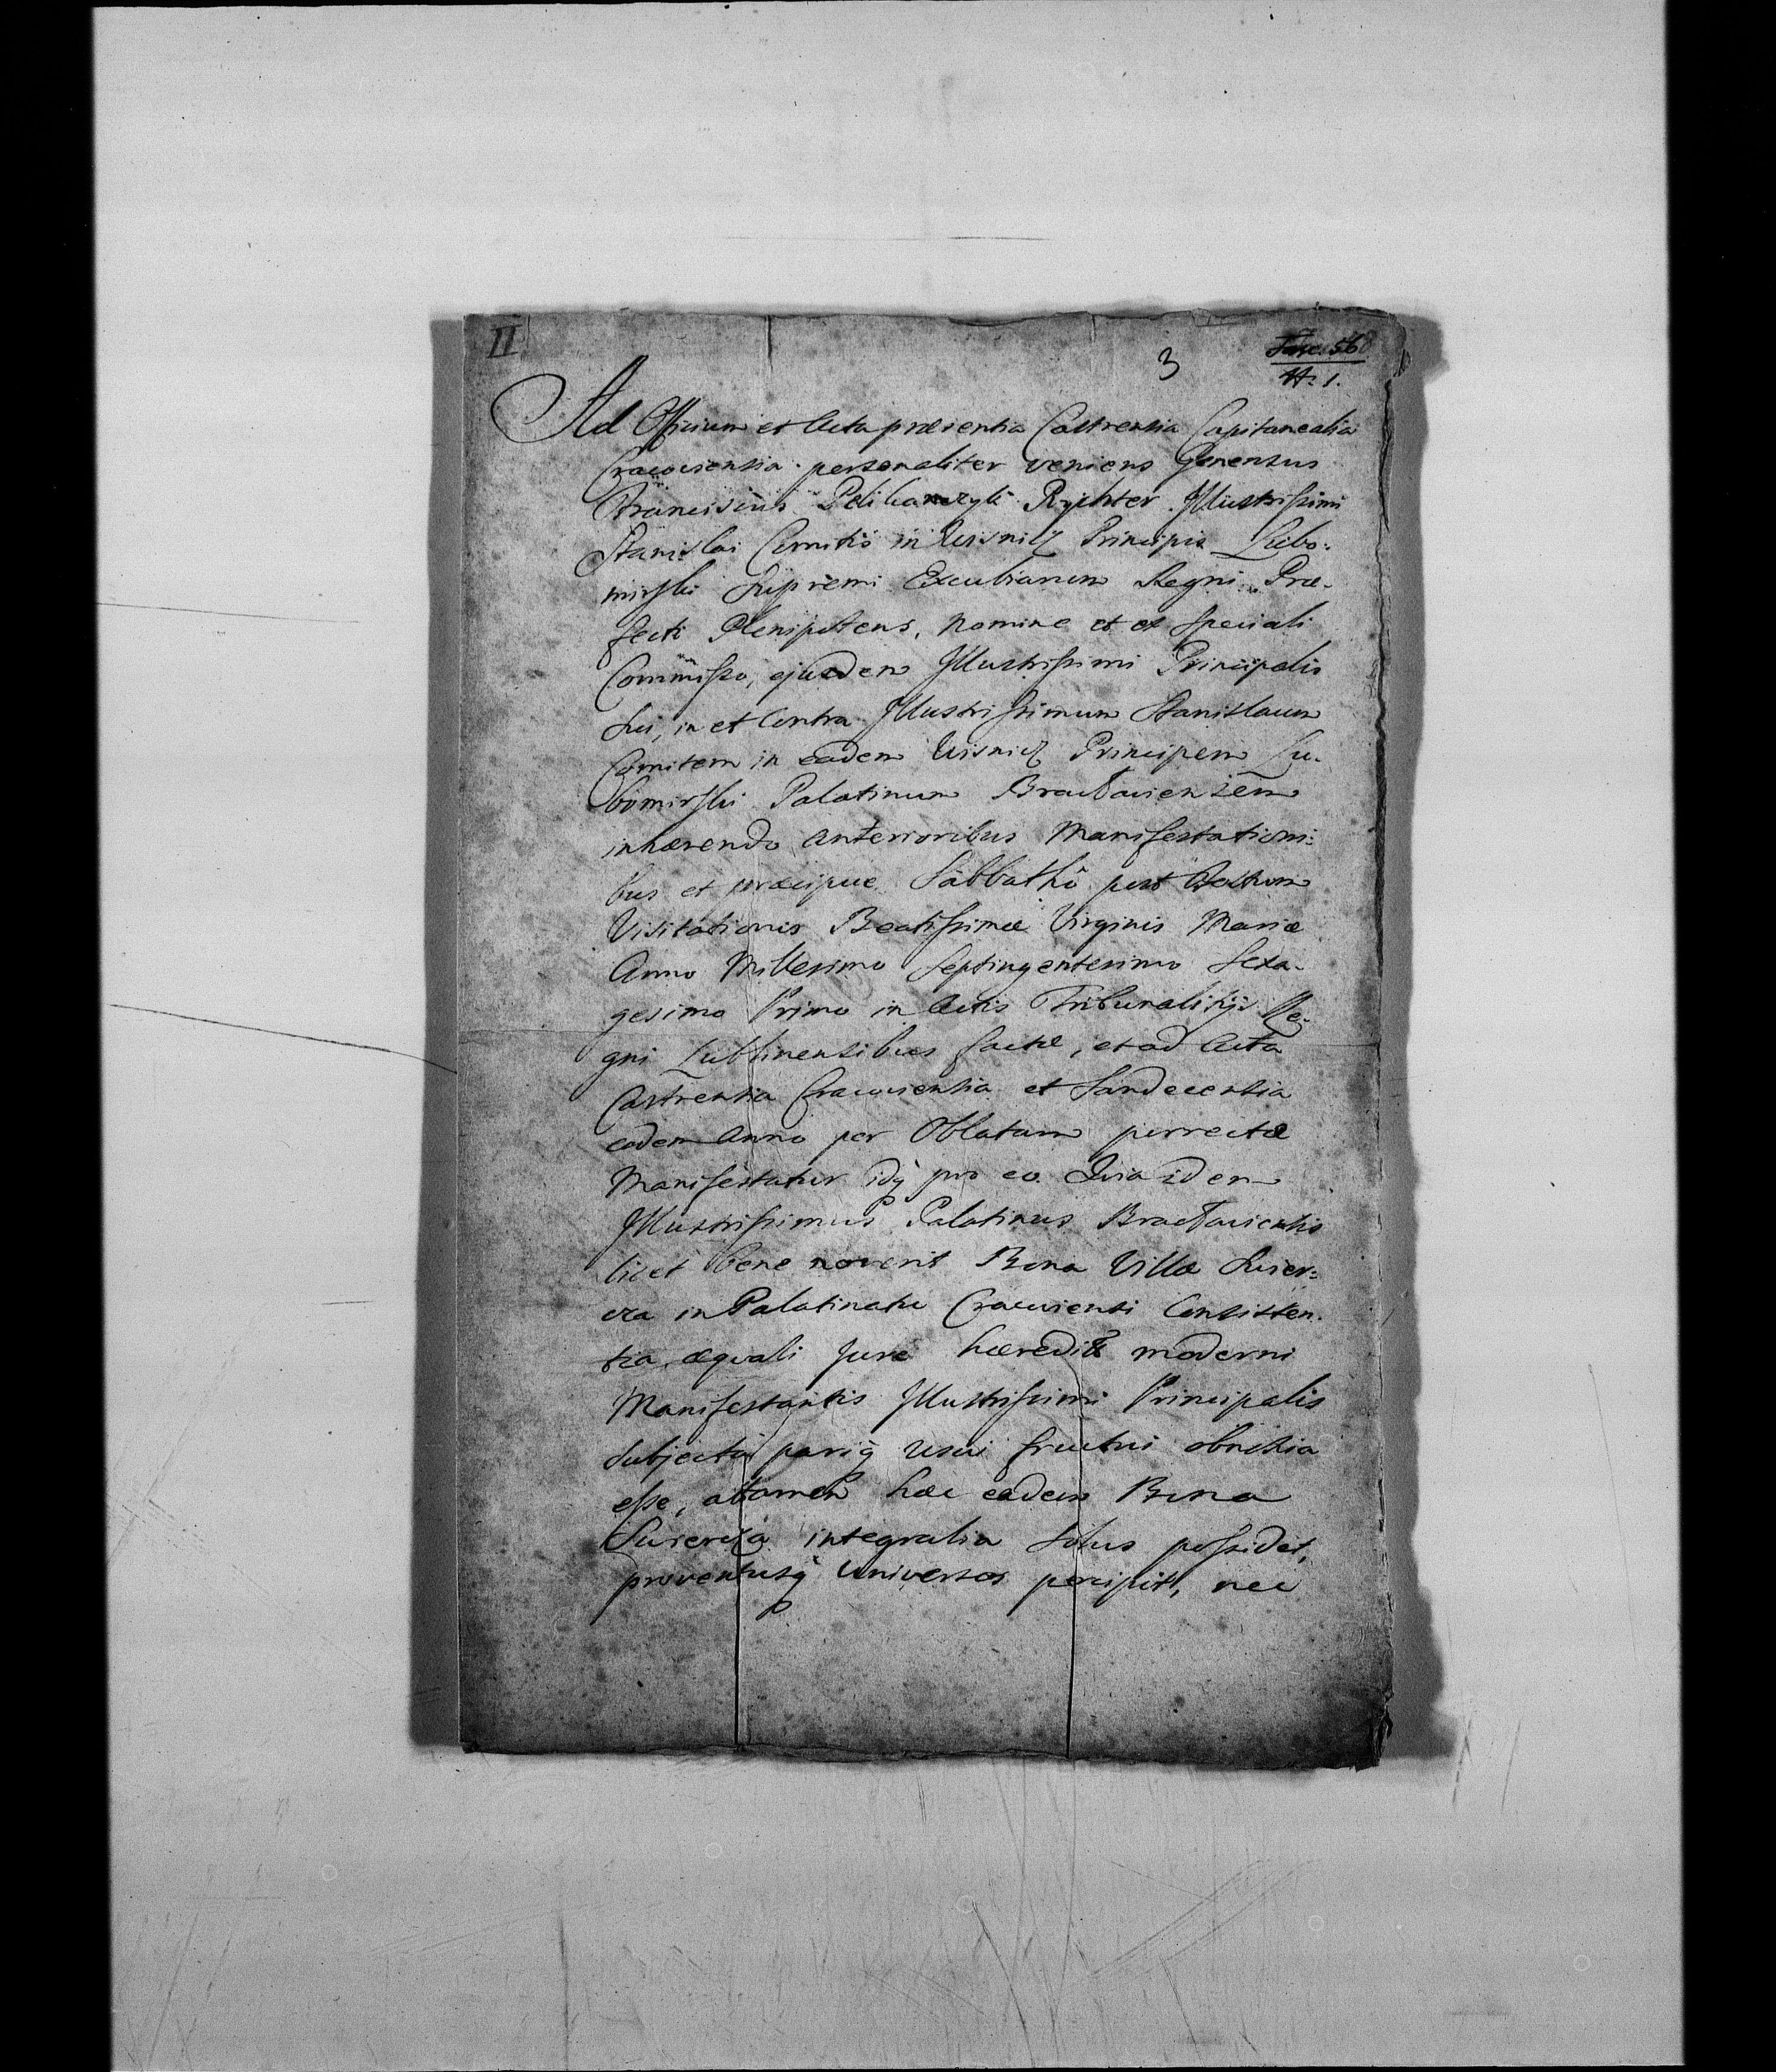 II
3
Fasc. 56
N. 1.
Ad Officium et Acta præsentia Castrensia Capitanealia
Cracoviensia personaliter veniens Generosus
Franciscus Rychter Illustrissimi
Stanislai Comitis in Wisnicz Principis Lubo:
mirski Supremi Excubiarum Regni Præ-
fecti Plenipotens, nomine et ex speciali
Commisso, ejusdem Illustrissimi Principalis
Sui, in et Contra Illustrissimum Stanislaum
Comitem in eadem Wisnicz Principem Lu-
bomirski Palatinum Bractaviensem
inhærendo anterioribus Manifestationi:
bus et præcipue Sabbathô post Festum
Visitationis Beatissimæ Virginis Mariæ
Anno Millesimo Septingentesimo Sexa-
gesimo Primo in Actis Tribunalitijs Re-
gni Lublinensibus factæ, et ad Acta
Castrensia Cracoviensia et Sandecensia
eodem Anno per Oblatam porrectæ
Manifestatur idq; pro eo Quia idem
Illustrissimus Palatinus Bractaviensis
licet bene noverit Bona Villæ Swier:
cza in Palatinatu Cracoviensi Consisten-
tia, æquali jure moderni
Manifestantis Illustrissimi Principalis
Subjecta pariq; usui fructui obnoxia
esse, attamen hæc eadem Bona
Swiercza integralia Solus possidet,
proventusq; Universos percipit, nec